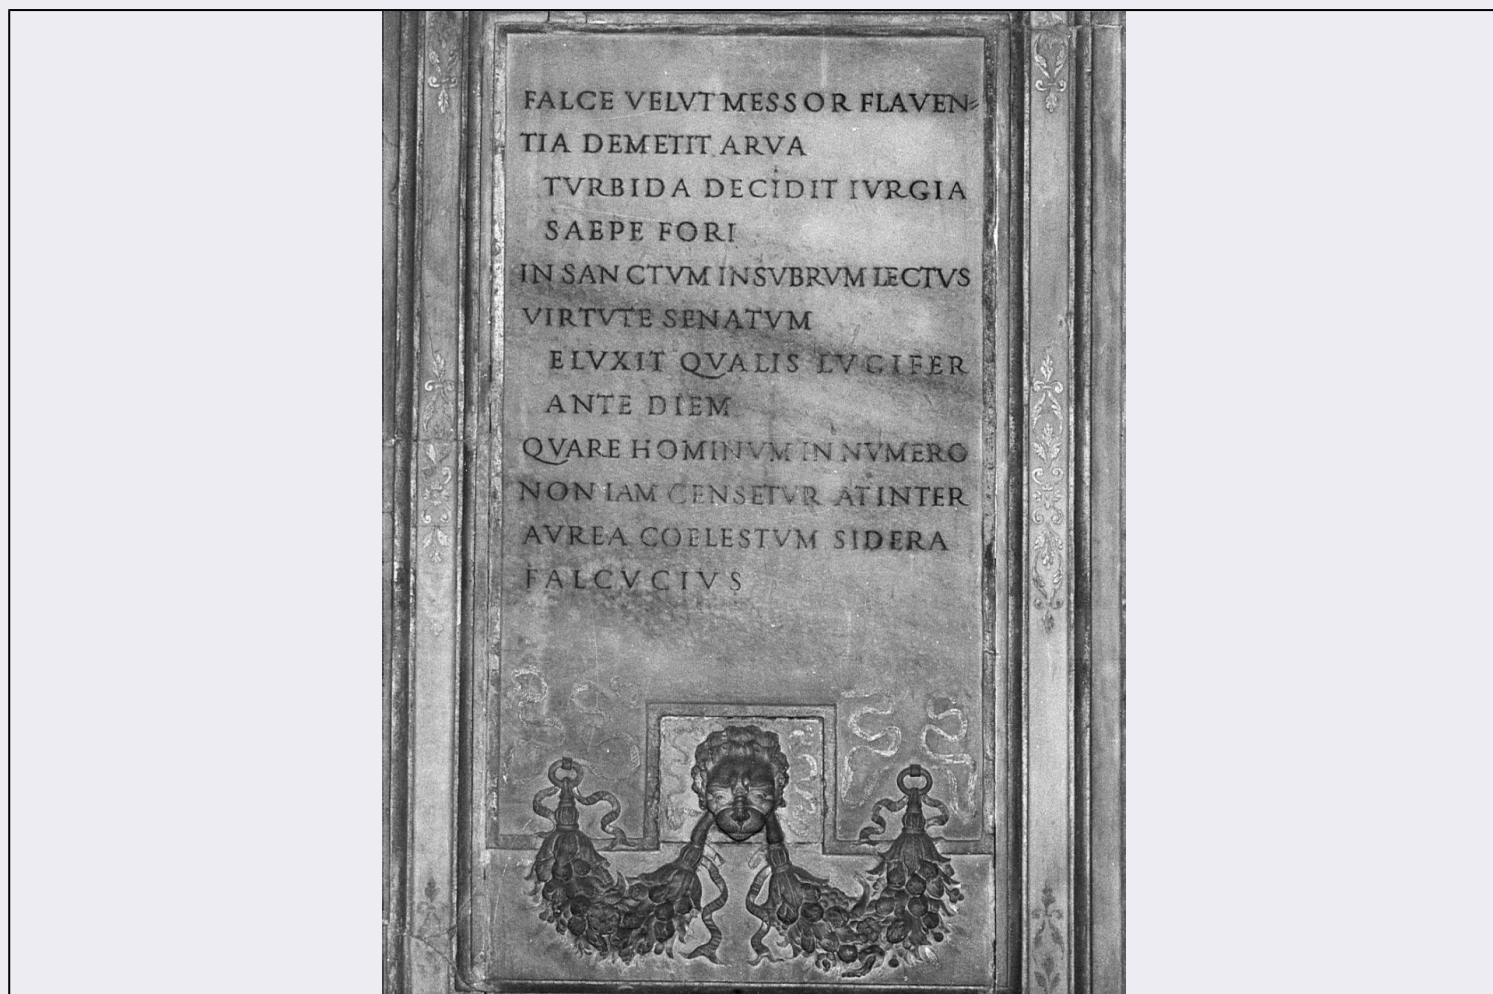 FALCE VELVT MESSOR FLAVEN=
TIA DEMETIT ARVA
TVRBIDA DECIDIT IVRGIA
SAEPE FORI
IN SANCTVM INSVBRVM LECTVS
VIRTVTE SENATVM
ELVXIT QVALIS LVCIFER
ANTE DIEM
QVARE HOMINVM IN NVMERO
NON IAM CENSETVR AT INTER
AVREA COELESTVM SIDERA
FALCVCIVS